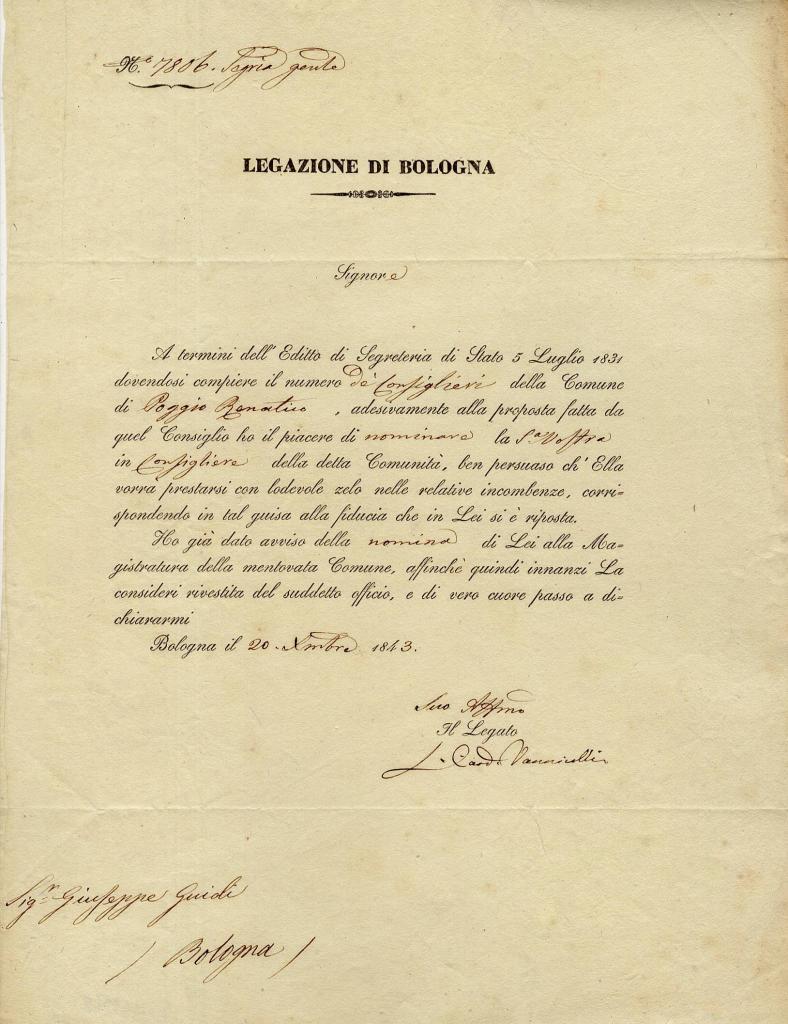 N.º 7806.
LEGAZIONE DI BOLOGNA
Signore
A termini dell' Editto di Segreteria di Stato 5 Luglio 1831
dovendosi compiere il numero de' Consiglieri della Comune
di Poggio Renatico, adesivamente alla proposta fatta da
quel Consiglio ho il piacere di nominare la S.ª Vostra
in Consigliere della detta Comunità, ben persuaso ch' Ella
vorrà prestarsi con lodevole zelo nelle relative incombenze, corri-
spondendo in tal guisa alla fiducia che in Lei si è riposta.
Ho già dato avviso della nomina di Lei alla Ma-
gistratura della mentovata Comune, affinchè quindi innanzi La
consideri rivestita del suddetto officio, e di vero cuore passo a di-
chiararmi
Bologna il 20. Xmbre 1843.
Suo Affmo
Il Legato
L. Card. Vannicelli
Sig.r Giuseppe Guidi
/ Bologna /